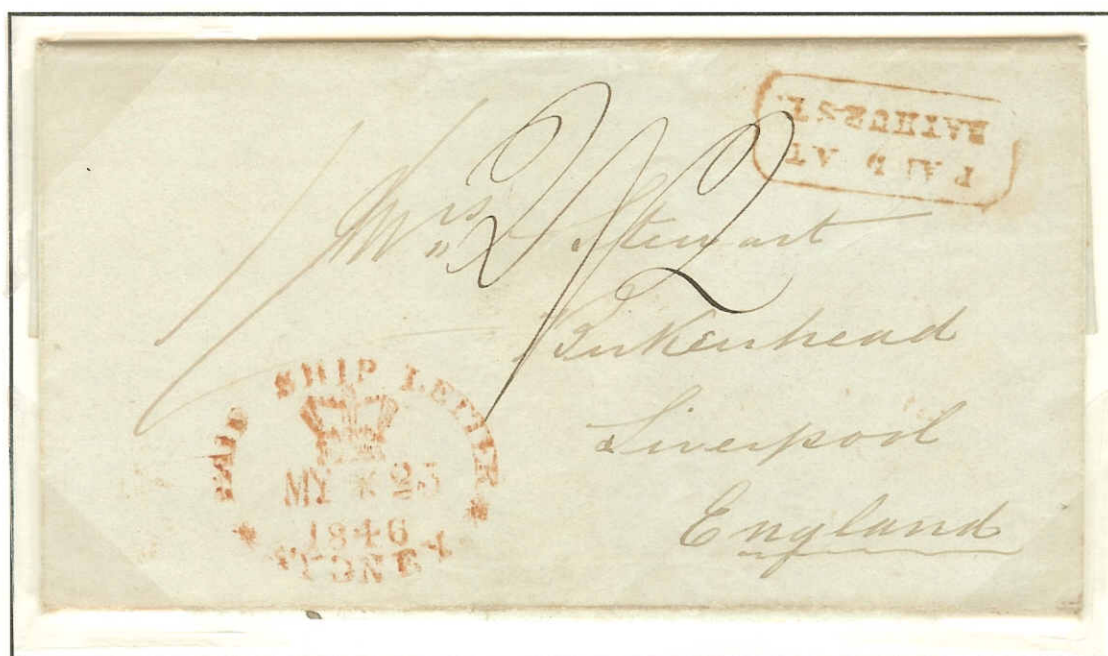 PAID AT
BATHURST
Mrs Stewart
2/2
Birkenhead
Liverpool
England
PAID SHIP LETTER
MY 23
1846
SYDNEY